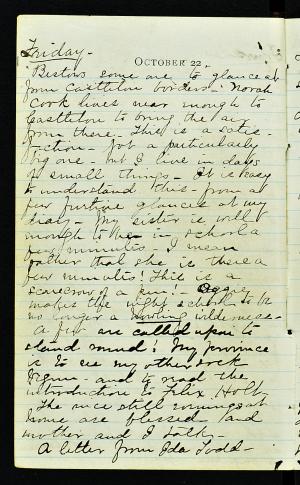 Friday -
OCTOBER 22
some one to glance at
from Castleton borders - Norah
Cook lives near enough to
Castleton to bring the
from there. This is a satis-
faction - not a particularly
big one - but I live in days
of small things - It is easy
to understand this - from a
few furtive glances at my
diary - My sister is well
enough to be in school a
few minutes - I mean
rather that she is there a
few minutes! This is a
makes the night school to be
no longer a howling wilderness -
A few are called upon to
stand round! My province
is to see my other sock
begun - and to read the
introduction to Felix Holt.
The nice still evenings at
home are blessed and
mother and I talk -
A letter from Ida Todd -